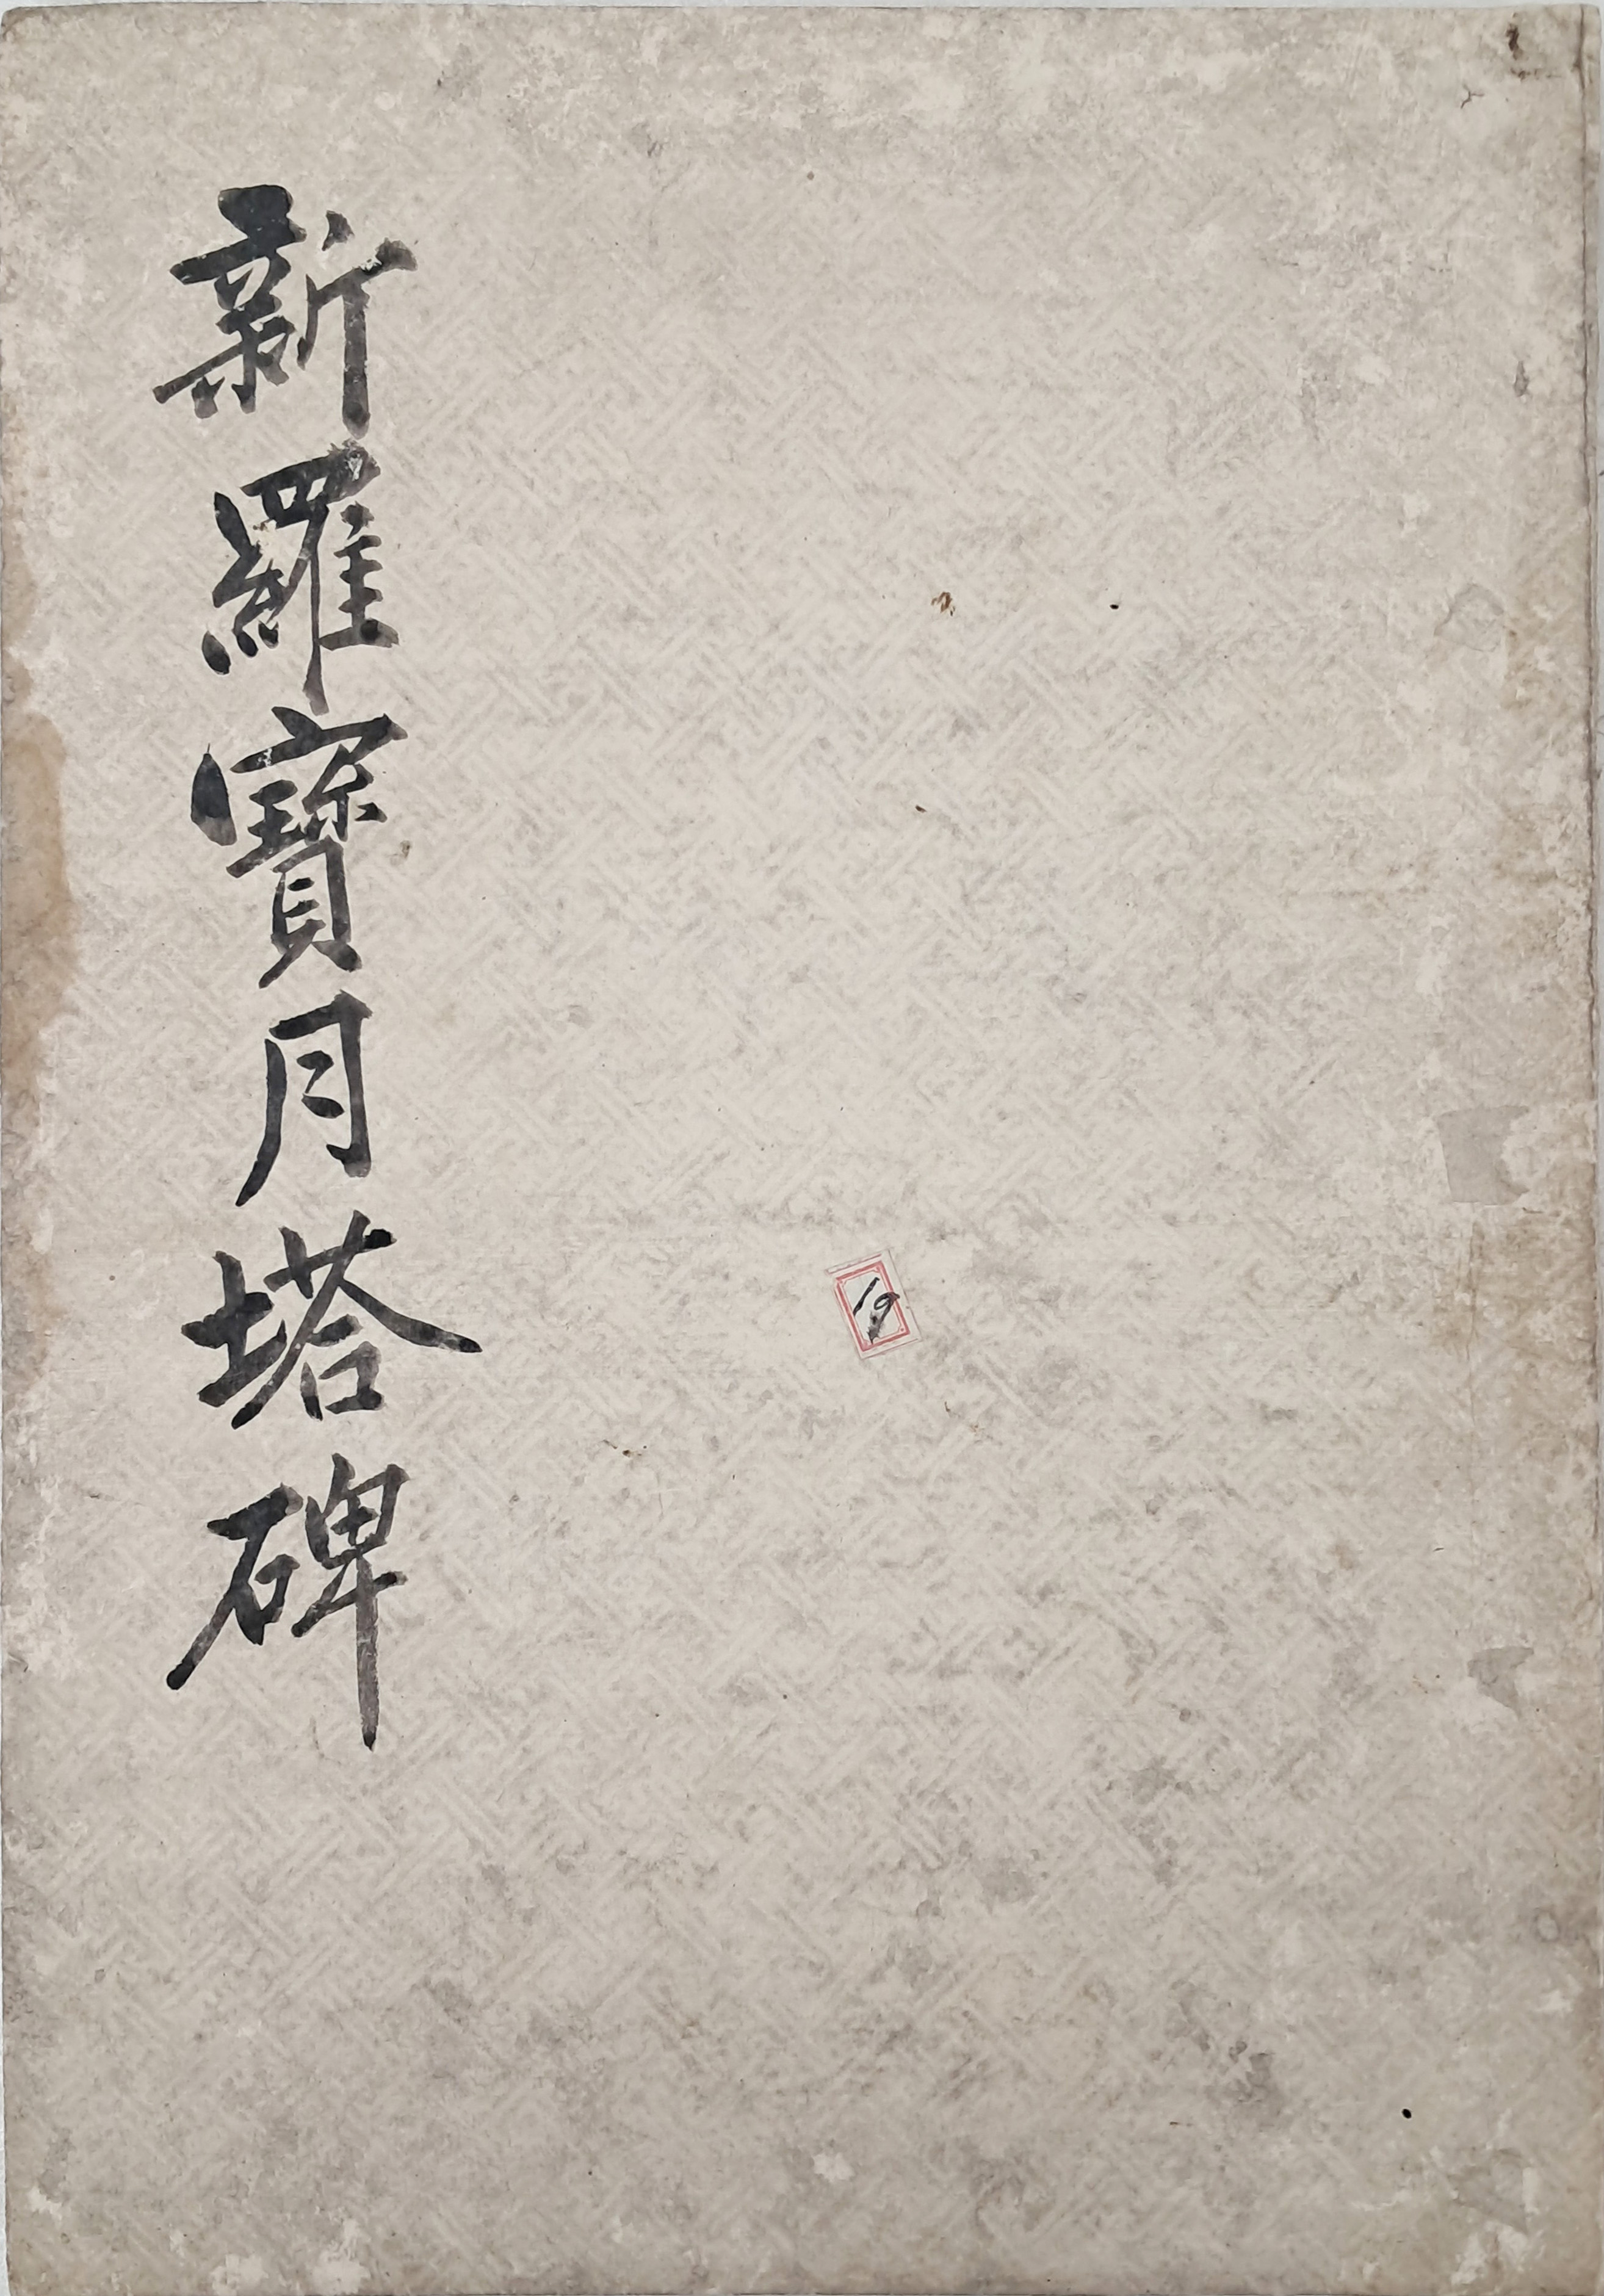 新羅寶月塔碑
19